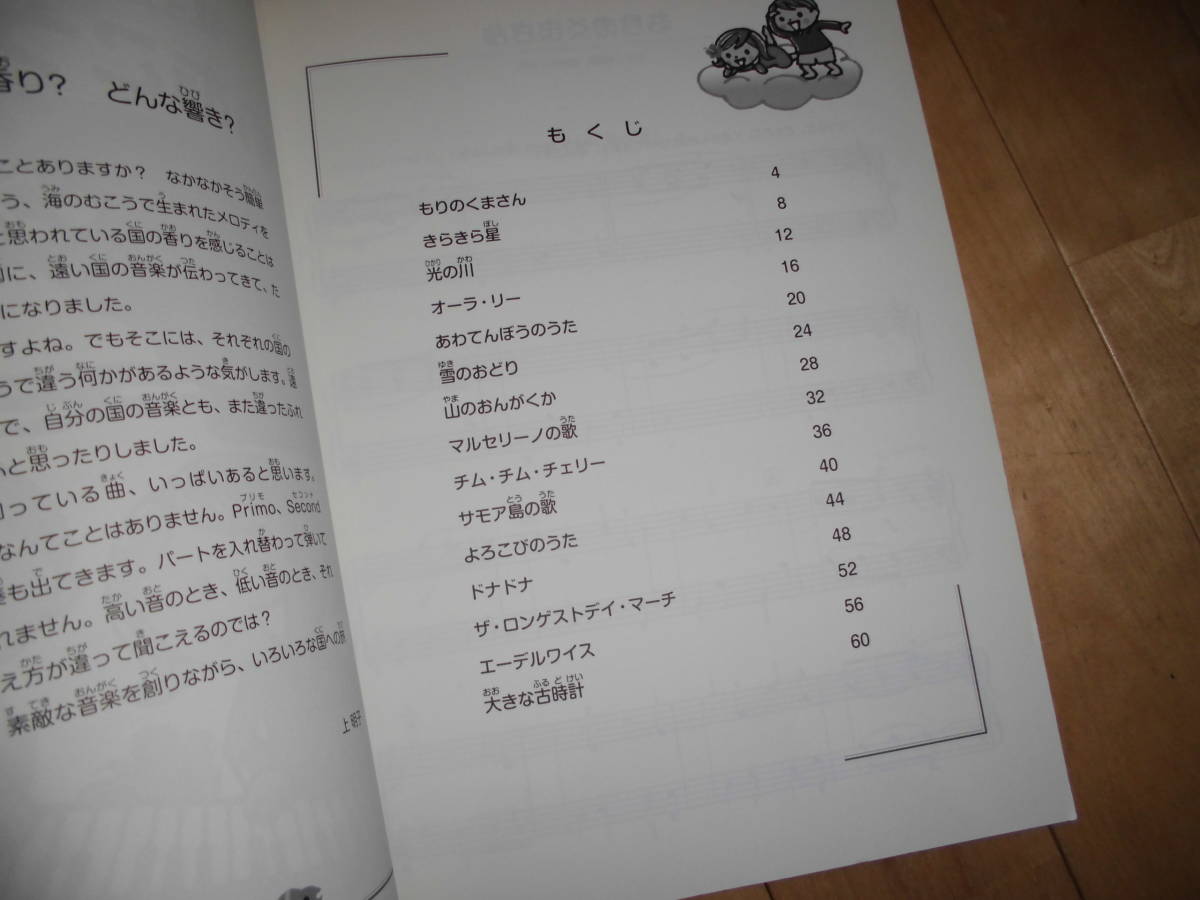 り？ どんな響き？
ことありますか？ なかなかそう簡単
う、海のむこうで生まれたメロディを
思われている国の香りを感じることは
に、遠い国の音楽が伝わってきて、た
になりました。
すよね。でもそこには、それぞれの国の
うで違う何かがあるような気がします。遠
で、自分の国の音楽とも、また違ったふれ
と思ったりしました。
っている曲、いっぱいあると思います。
なんてことはありません。Primo、Second
も出てきます。パートを入れ替わって弾いて
れません。高い音のとき、低い音のとき、それ
え方が違って聞こえるのでは？
素敵な音楽を創りながら、いろいろな国への旅
上 明子
もくじ
もりのくまさん 4
きらきら星 8
光の川 12
オーラ・リー 16
あわてんぼうのうた 20
雪のおどり 24
山のおんがくか 28
マルセリーノの歌 32
チム・チム・チェリー 36
サモア島の歌 40
よろこびのうた 44
ドナドナ 48
ザ・ロンゲストデイ・マーチ 52
エーデルワイス 56
大きな古時計 60